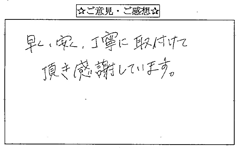 ☆ご意見・ご感想☆
早く、安く、丁寧に取付けて
頂き感謝しています。